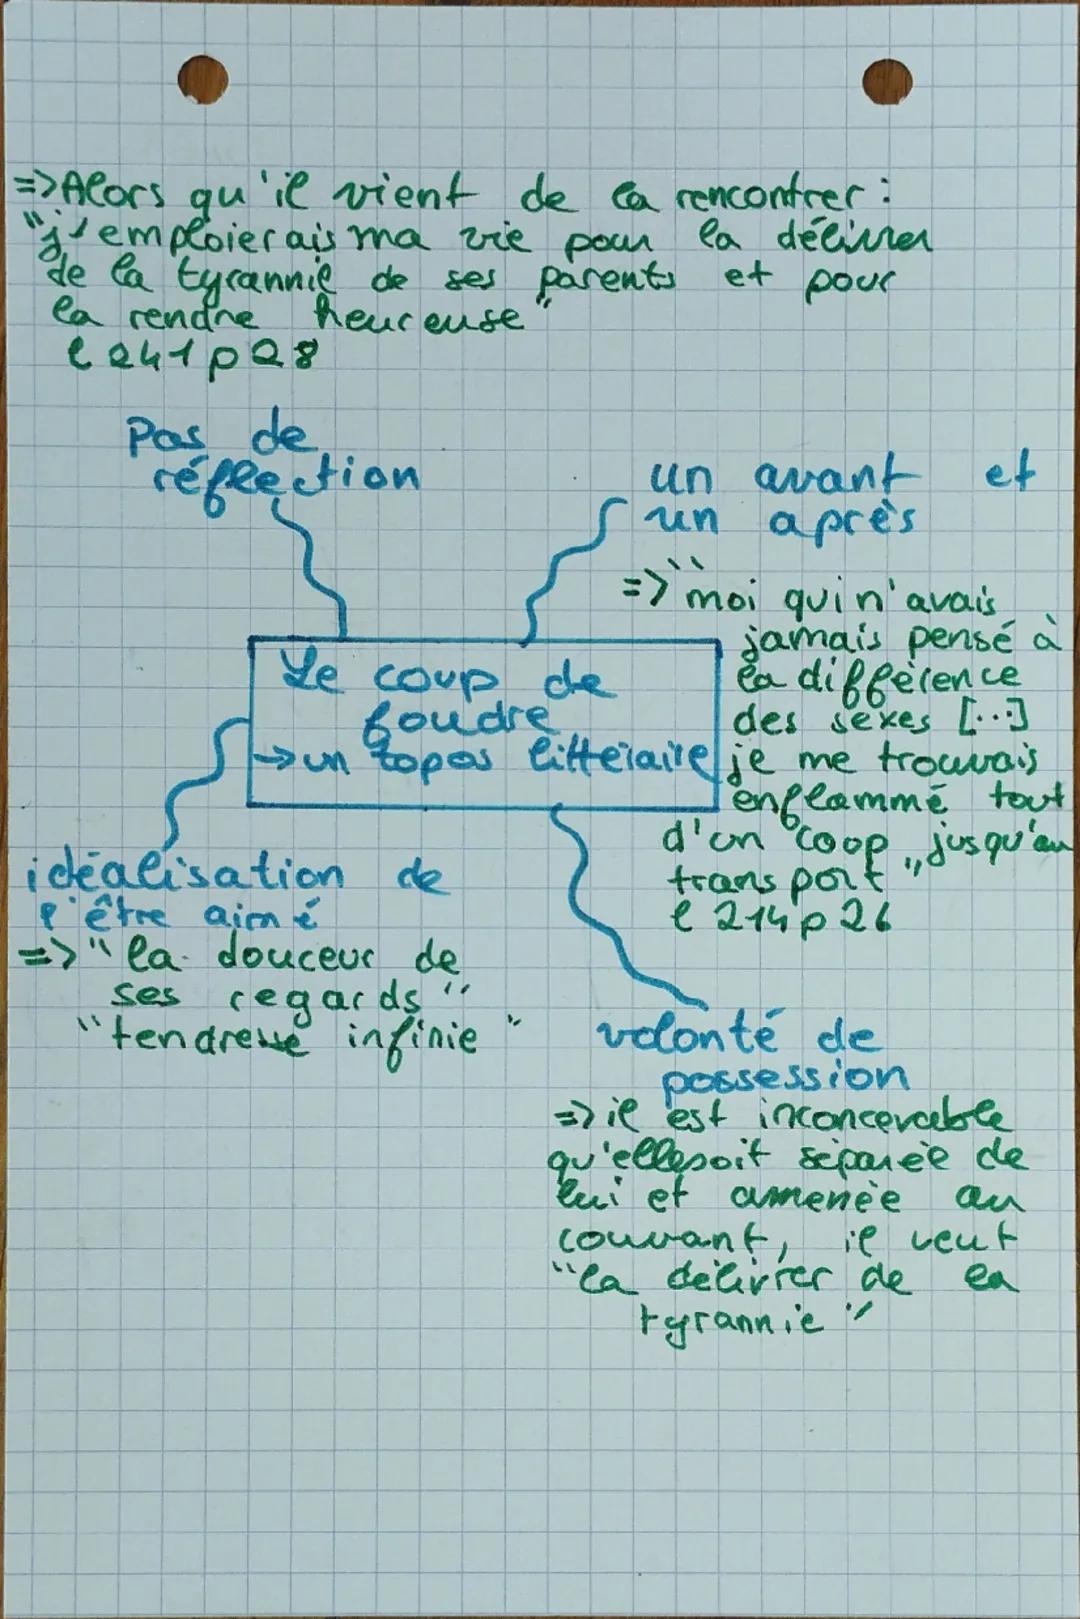 =>Alors qu'il vient de la rencontrer :
"j'emploierais ma vie pour la délivrer
de la tyrannie de ses parents et pour
la rendre heureuse"
l 241 p 28
Pas de
réflection
un avant et
un après
=>"moi qui n'avais
jamais pensé à
la différence
des sexes [...]
je me trouvais
enflammé tout
d'un coop jusqu'au
transport"
l 214 p 26
Le coup de
foudre
→un topos littéraire
idéalisation de
l'être aimé
=>"la douceur de
ses regards"
"tendresse infinie"
volonté de
possession
=>il est inconcevable
qu'elle soit séparée de
lui et amenée au
couvant, il veut
"la délivrer de la
tyrannie"